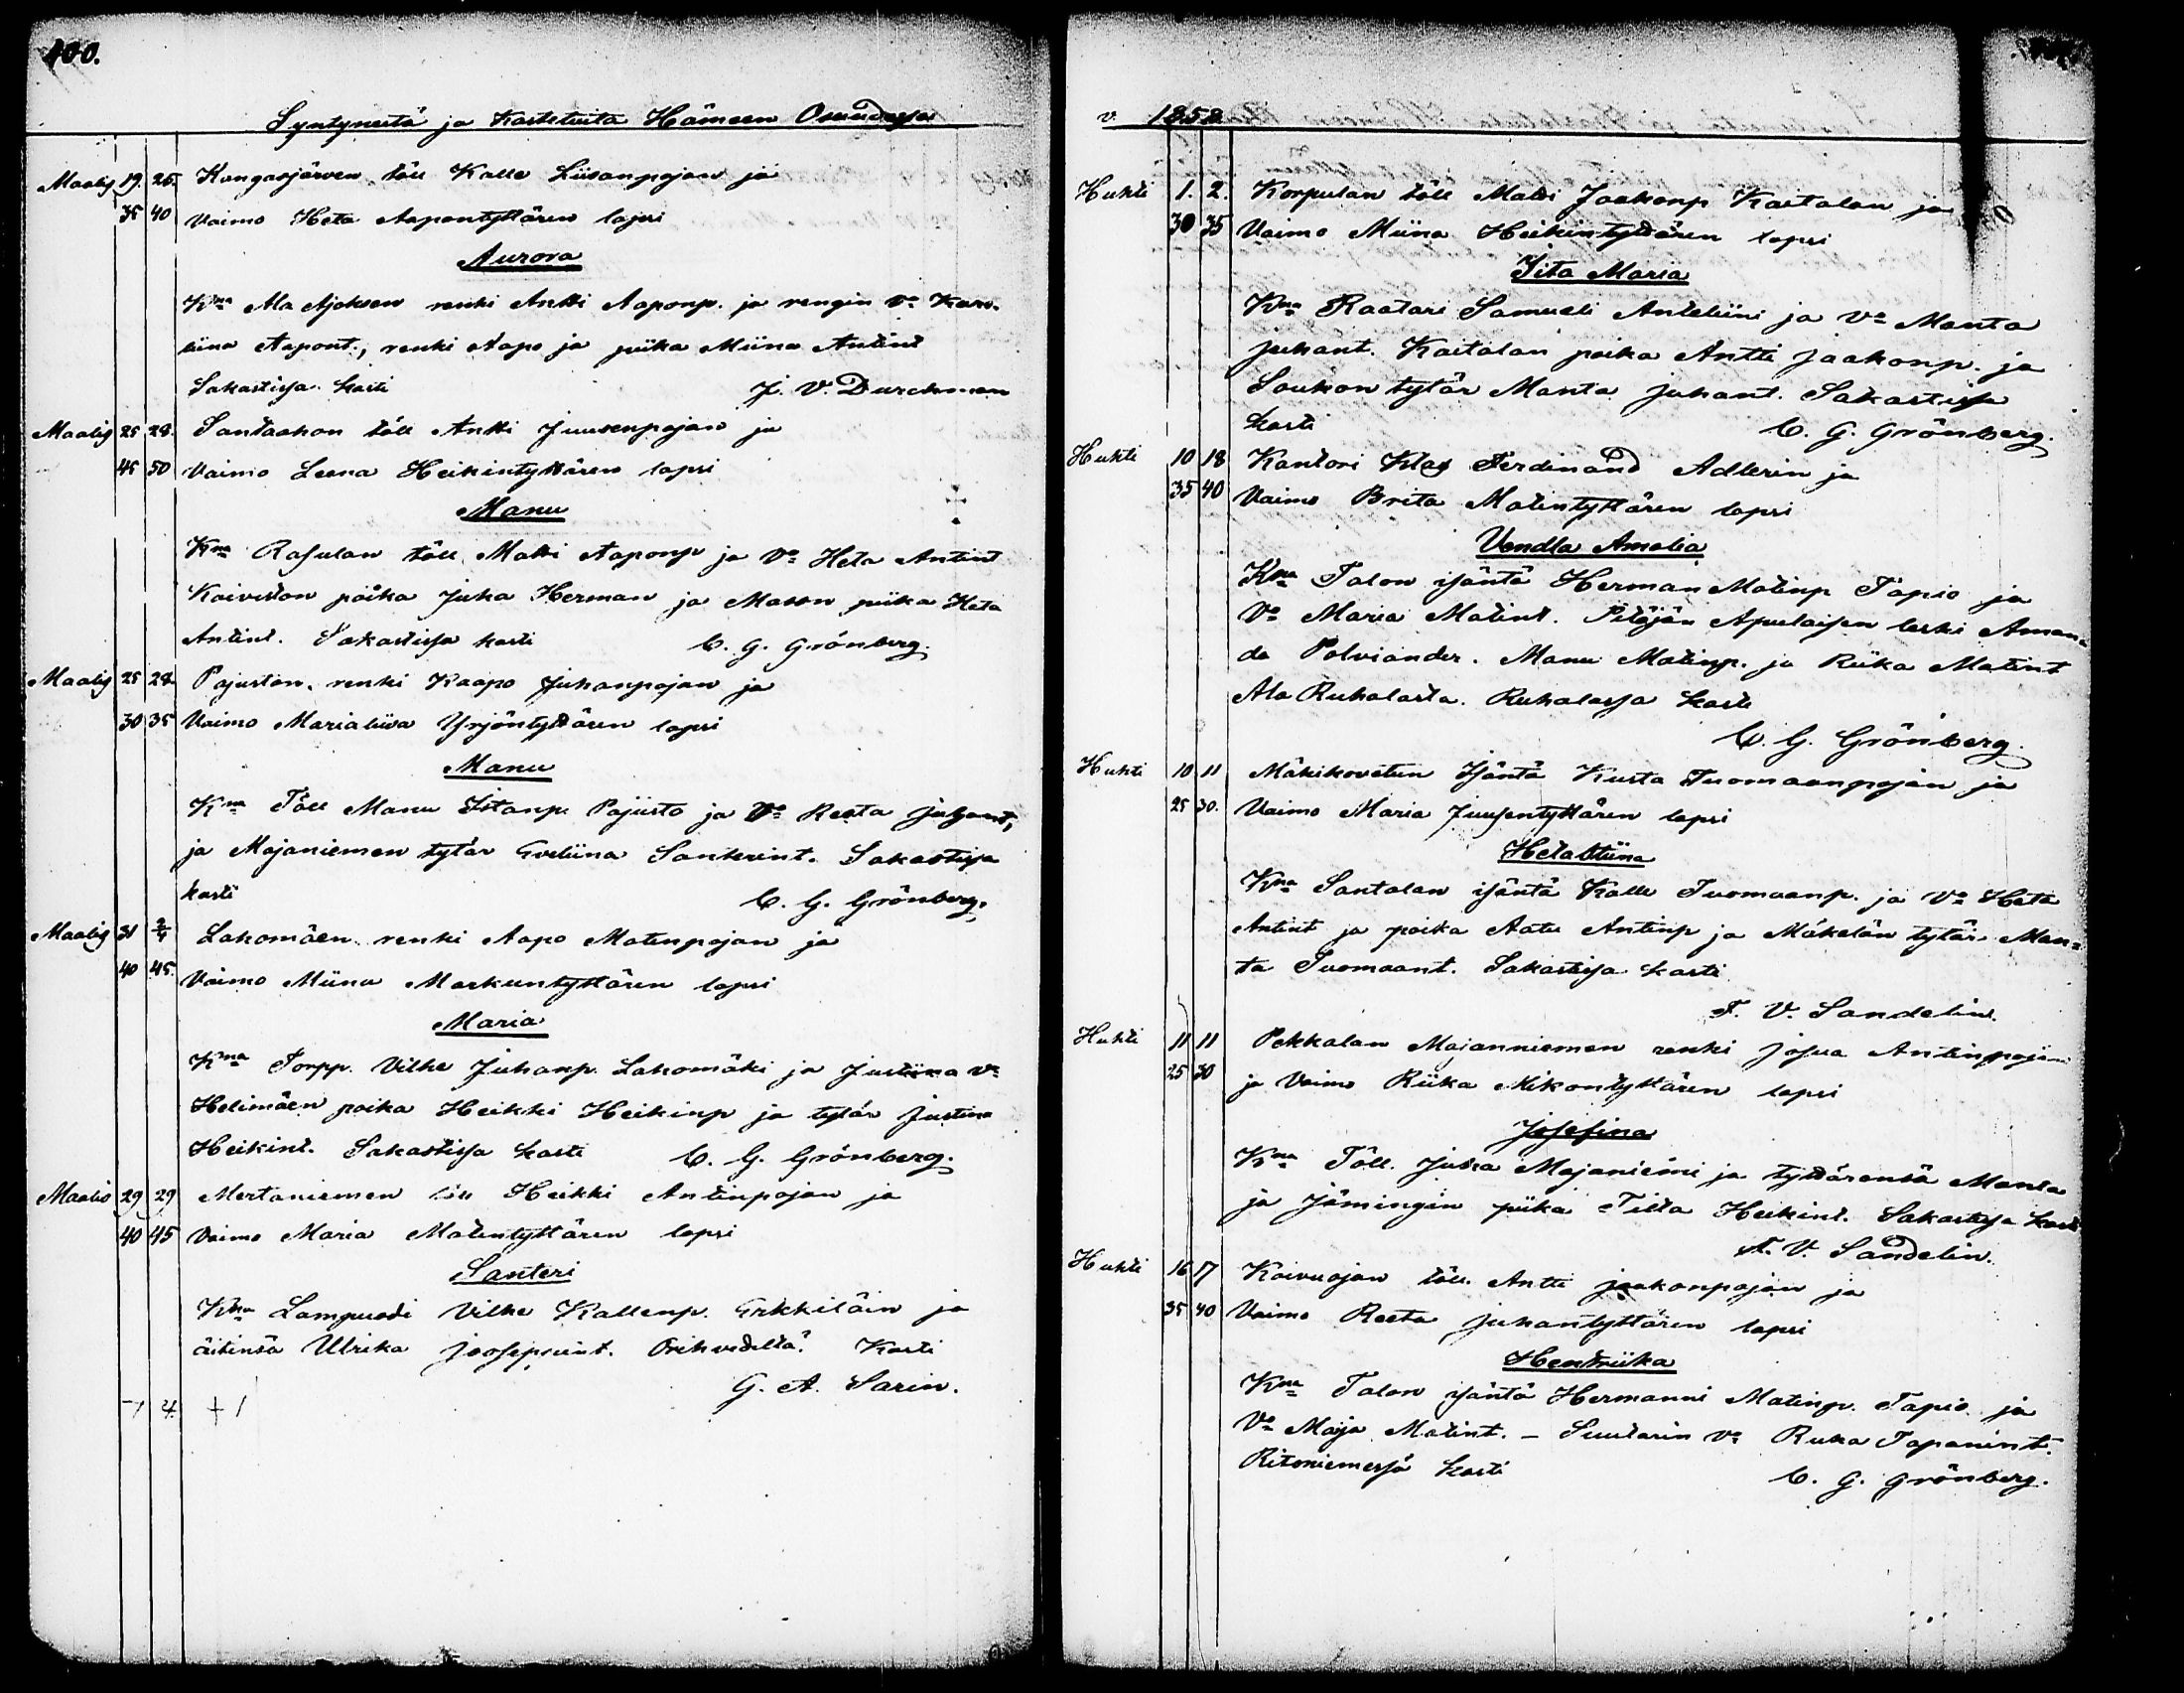 100.
Syntyneitä ja kastetuita Hämeen Osuudessa
Maalis 19. 25. Kangasjärven töll Kalle Liisanpojan ja
35 40 Vaimo Heta Aapontyttären lapsi
Aurora
Kna Ala Ajoksen renki Antti Aaponp. ja rengin vo Karo-
liina Aapont., renki Aapo ja piika Miina Antint
Sakastissa kasti J. V. Durchman
Maalis 25 28. Santaahon töll Antti Juusenpojan ja
45 50 Vaimo Leena Heikintyttären lapsi
Manu
Kna Rasulan töll Matti Aaponp ja Vo Heta Antint
Koiviston poika Juka Herman ja Mason piika Heta
Antint. Sakastissa kasti C. G. Grönberg.
Maalis 25 28. Pajuston renki Kaapo Juhanpojan ja
30 35 Vaimo Marialiisa Yrjöntyttären lapsi
Manu
Kna Töll Manu Pajusto ja Vo Reeta Juhant,
ja Majaniemen tytär Eveliina Santerint. Sakastissa
kasti C. G. Grönberg.
Maalis 31 2/4 Lahomäen renki Aapo Matinpojan ja
40 45. Vaimo Miina Markuntyttären lapsi
Maria
Kna Torpp. Vilhe Juhanp. Lahomäki ja Justiina vo
Helimäen poika Heikki Heikinp ja tytär Justina
Heikint. Sakastissa kasti C. G. Grönberg.
Maalis 29 29 Mertaniemen töll Heikki Antinpojan ja
40 45 Vaimo Maria Matintyttären lapsi
Santeri
Kna Lampuodi Vilhe Kallenp. Erkkiläin ja
äitinsä Ulrika Joosepint. Orihvedeltä. Kasti
G. A. Sarin.
7 4. + 1
v. 1858
Huhti 1. 2. Korpulan töll Matti Jaakonp Kaitalan ja
30 35 Vaimo Miina Heikintyttären lapsi
Iita Maria
Kna Raatari Samueli Anteliini ja Vo Manta
Juhant. Kaitalan poika Antti Jaakonp. ja
Soukon tytär Manta Juhant. Sakastissa
kasti C. G. Grönberg.
Huhti 10 18 Kantori Klas Ferdinand Adlerin ja
35 40 Vaimo Brita Matintyttären lapsi
Vendla Amalia
Kna Talon isäntä Herman Matinp Tapio ja
Vo Maria Matint. Pitäjän Apulaisen leski Aman-
da Polviander. Manu Matinp. ja Riika Matint
Ala Ruhalasta. Ruhalassa kasti
C. G. Grönberg.
Huhti 10 11 Mäkikovetun Isäntä Kusta Tuomaanpojan ja
25 30. Vaimo Maria Juusentyttären lapsi
Hetastiina
Kna Santalan isäntä Kalle Tuomaanp. ja Vo Heta
Antint ja poika Aatu Antinp ja Mäkelän tytär Man-
ta Tuomaant. Sakastissa kasti
F. V. Sandelin.
Huhti 11 11 Pekkalan Majanniemen renki Josua Antinpojan
25 30 ja Vaimo Riika Mikontyttären lapsi
Josefina
Kna Töll. Juha Majaniemi ja tyttärensä Manta
ja Jämingin piika Tilta Heikint. Sakastissa kasti
F. V. Sandelin.
Huhti 16 17 Koivuojan töll. Antti Jaakonpojan ja
35 40 Vaimo Reeta Juhantyttären lapsi
Hendriika
Kna Talon isäntä Hermanni Matinp. Tapio ja
Vo Maija Matint. - Suutarin Vo Ruka Tapanint.
Ritoniemessä kasti C. G. Grönberg.